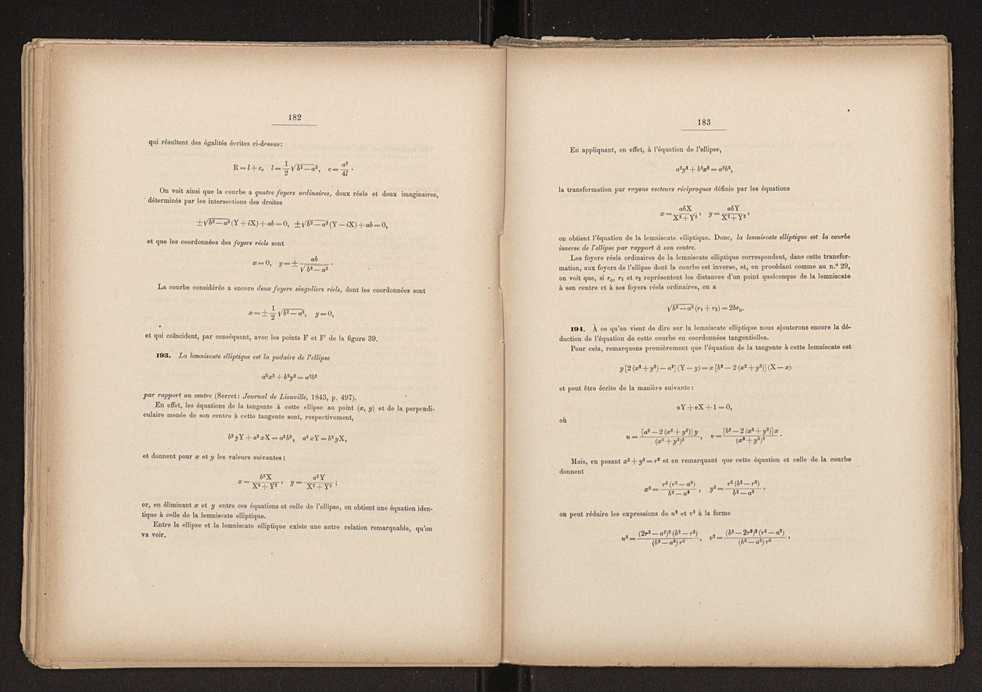 182
qui résultent des égalités écrites ci-dessus:
R = l + c, l = 1/2 √(b² — a²), c = a²/4l .
On voit ainsi que la courbe a quatre foyers ordinaires, deux réels et deux imaginaires,
déterminés par les intersections des droites
± √(b² — a²) (Y + iX) + ab = 0, ± √(b² — a²) (Y — iX) + ab = 0,
et que les coordonnées des foyers réels sont
x = 0, y = ± ab/√(b² — a²) .
La courbe considérée a encore deux foyers singuliers réels, dont les coordonnées sont
x = ± 1/2 √(b² — a²), y = 0,
et qui coïncident, par conséquent, avec les points F et F' de la figure 39.
193. La lemniscate elliptique est la podaire de l'ellipse
a²x² + b²y² = a²b²
par rapport au centre (Serret: Journal de Liouville, 1843, p. 497).
En effet, les équations de la tangente à cette ellipse au point (x, y) et de la perpendi-
culaire menée de son centre à cette tangente sont, respectivement,
b²yY + a²xX = a²b², a²xY = b²yX,
et donnent pour x et y les valeurs suivantes:
x = b²X/(X² + Y²) , y = a²Y/(X² + Y²) ;
or, en éliminant x et y entre ces équations et celle de l'ellipse, on obtient une équation iden-
tique à celle de la lemniscate elliptique.
Entre la ellipse et la lemniscate elliptique existe une autre relation remarquable, qu'on
va voir.
183
En appliquant, en effet, à l'équation de l'ellipse,
a²y² + b²x² = a²b²,
la transformation par rayons vecteurs réciproques définie par les équations
x = abX/(X² + Y²) , y = abY/(X² + Y²) ,
on obtient l'équation de la lemniscate elliptique. Donc, la lemniscate elliptique est la courbe
inverse de l'ellipse par rapport à son centre.
Les foyers réels ordinaires de la lemniscate elliptique correspondent, dans cette transfor-
mation, aux foyers de l'ellipse dont la courbe est inverse, et, en procédant comme au n.º 29,
on voit que, si r₀, r₁ et r₂ représentent les distances d'un point quelconque de la lemniscate
à son centre et à ses foyers réels ordinaires, on a
√(b² — a²) (r₁ + r₂) = 2br₀.
194. À ce qu'on vient de dire sur la lemniscate elliptique nous ajouterons encore la dé-
duction de l'équation de cette courbe en coordonnées tangentielles.
Pour cela, remarquons premièrement que l'équation de la tangente à cette lemniscate est
y [2 (x² + y²) — a²] (Y — y) = x [b² — 2 (x² + y²)] (X — x)
et peut être écrite de la manière suivante:
uY + vX + 1 = 0,
où
u = [a² — 2 (x² + y²)] y/(x² + y²)² , v = [b² — 2 (x² + y²)] x/(x² + y²)² .
Mais, en posant x² + y² = r² et en remarquant que cette équation et celle de la courbe
donnent
x² = r² (r² — a²)/(b² — a²) , y² = r² (b² — r²)/(b² — a²) ,
on peut réduire les expressions de u² et v² à la forme
u² = (2r² — a²)² (b² — r²)/(b² — a²) r⁶ , v² = (b² — 2r²)² (r² — a²)/(b² — a²) r⁶ .